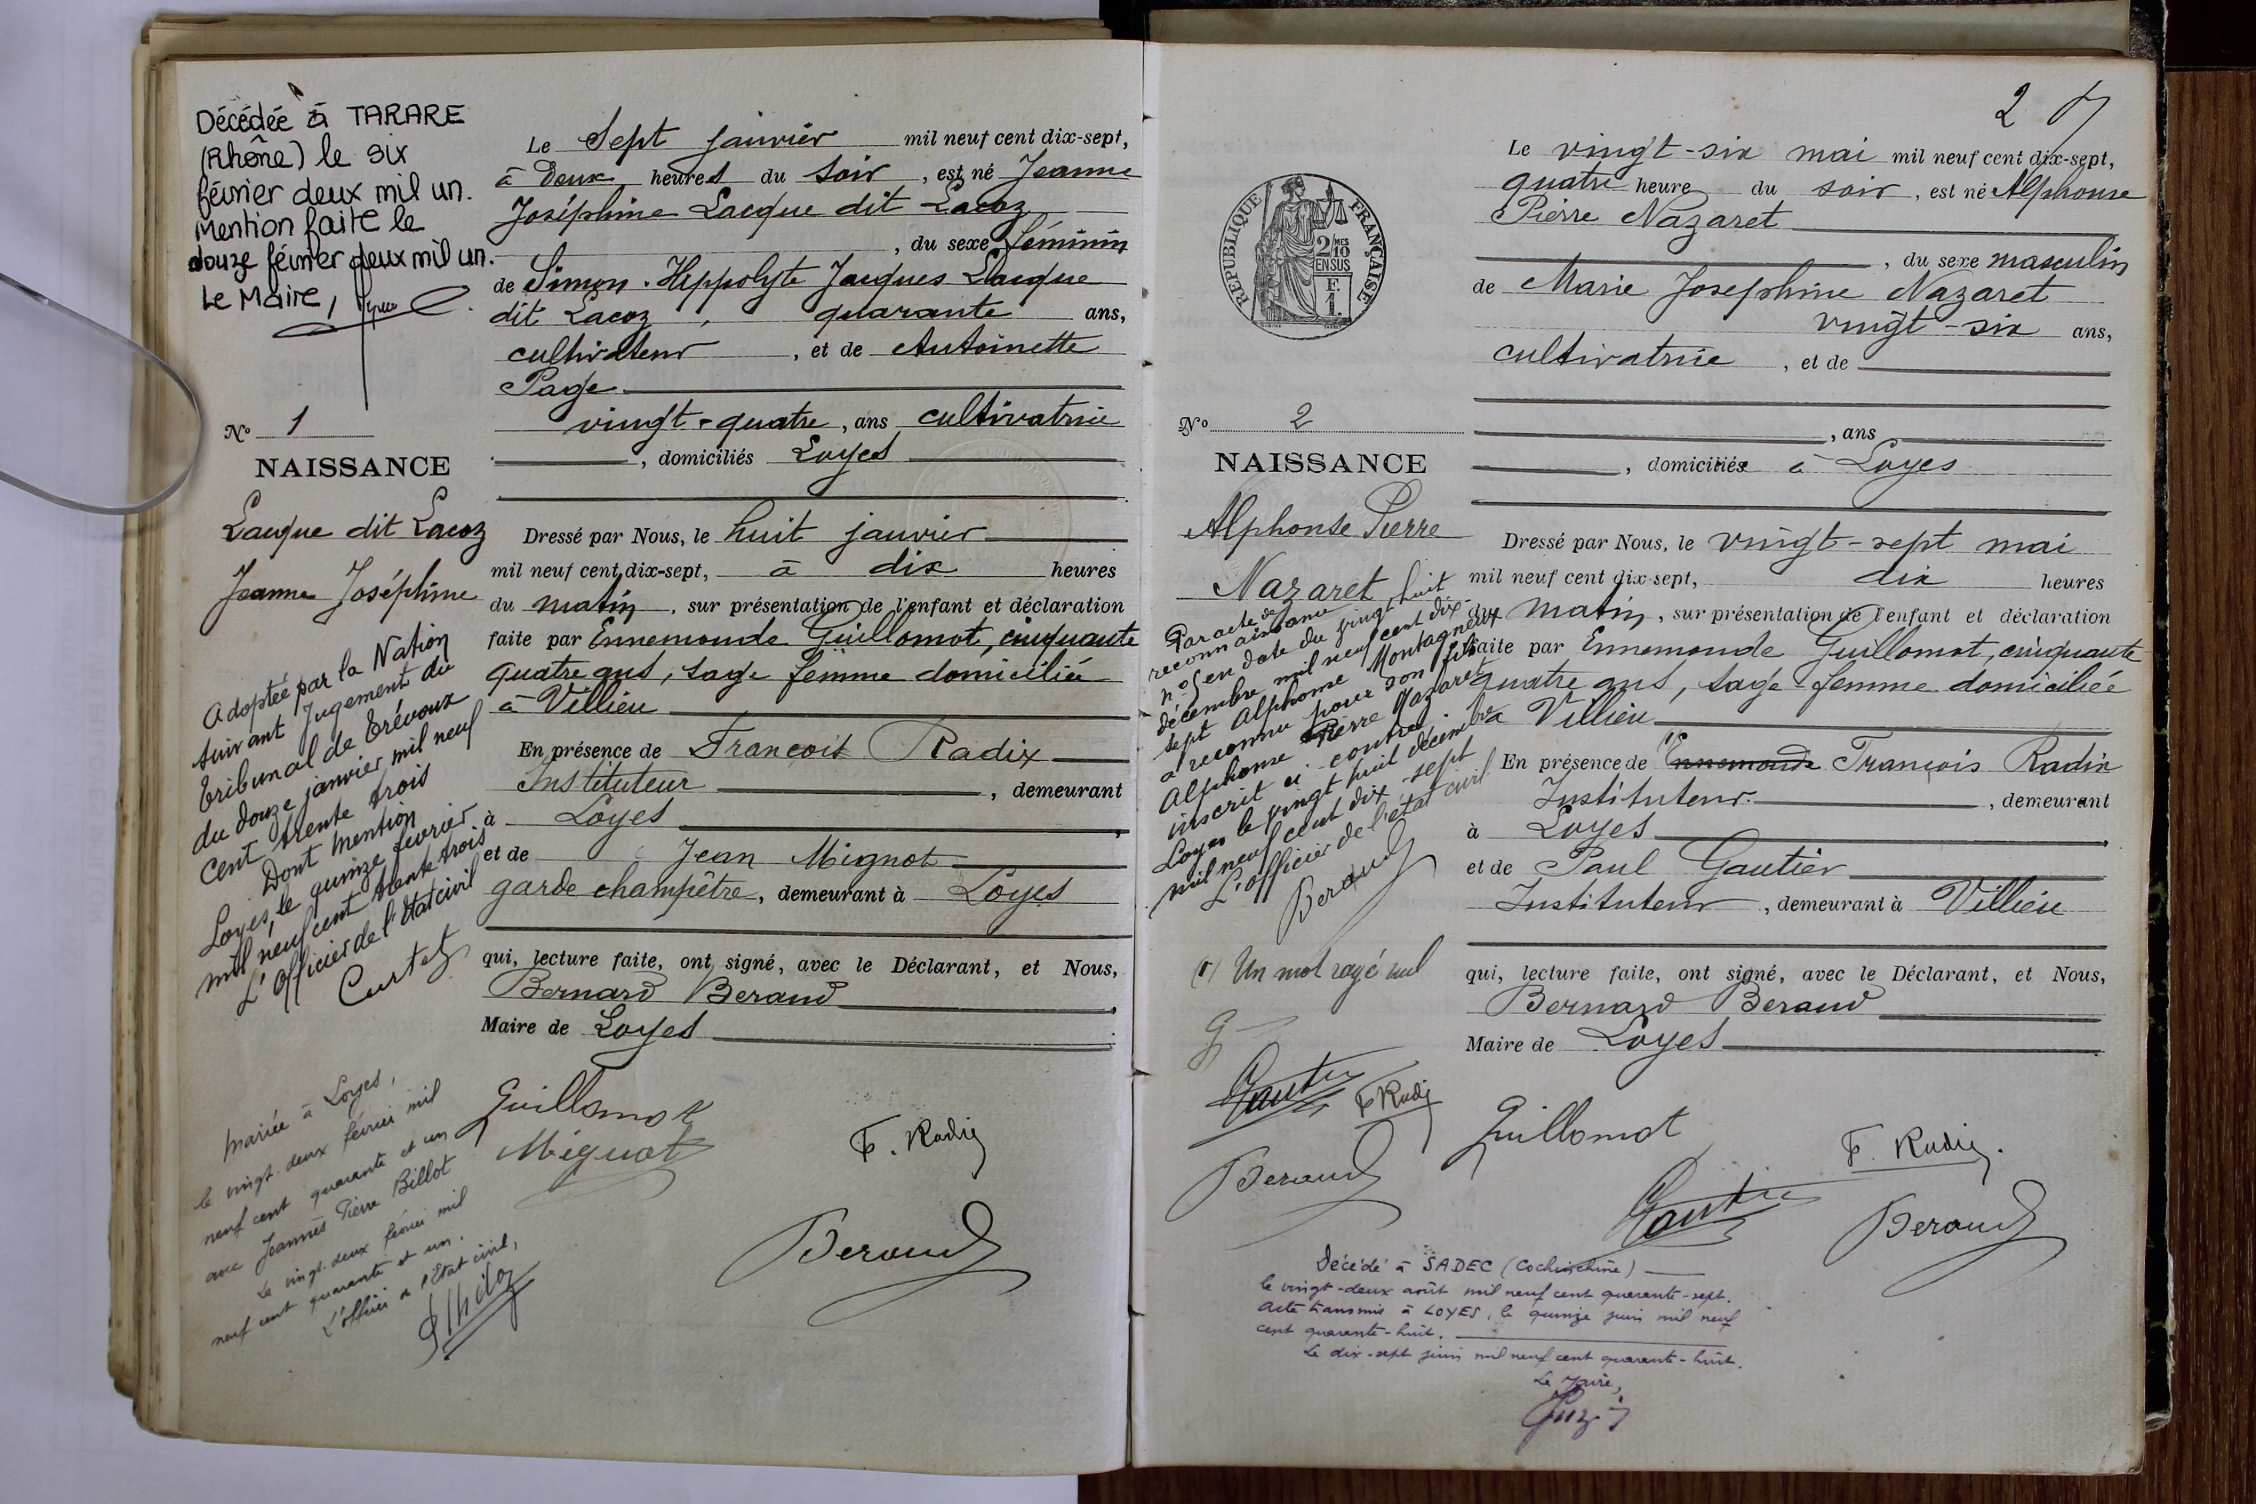 Décédée à TARARE
(Rhône) le six
février deux mil un.
Mention faite le
douze février deux mil un.
Le Maire,
No 1
NAISSANCE
Lacque dit Lacoz
Jeanne Joséphine
Adoptée par la Nation
suivant Jugement du
Tribunal de Trévoux
du douze janvier mil neuf
cent trente trois
Dont mention
Loyes, le quinze février
mil neuf cent trente trois
L'Officier de l'état civil
Curtet
Mariée à Loyes,
le vingt-deux février mil
neuf cent quarante et un
avec Joannès Pierre Billot
Le vingt-deux février mil
neuf cent quarante et un.
L'officier de l'Etat civil,
Le Sept janvier mil neuf cent dix-sept,
à Deux heures du soir, est né Jeanne
Joséphine Lacque dit Lacoz
, du sexe féminin
de Simon-Hippolyte Jacques Lacque
dit Lacoz, quarante ans,
cultivateur, et de Antoinette
Page
vingt-quatre, ans cultivatrice
, domiciliés Loyes
Dressé par Nous, le huit janvier
mil neuf cent dix-sept, à dix heures
du matin, sur présentation de l'enfant et déclaration
faite par Ennemonde Guillomot, cinquante
quatre ans, sage femme domiciliée
à Villieu
En présence de François Radix
Instituteur, demeurant
à Loyes
et de Jean Mignot
garde champêtre, demeurant à Loyes
qui, lecture faite, ont signé, avec le Déclarant, et Nous,
Bernard Beraud
Maire de Loyes
Guillomot
Mignot
F. Radix
Beraud
2
RÉPUBLIQUE FRANÇAISE
2/10 MES
EN SUS
F.
1.
No 2
NAISSANCE
Alphonse Pierre
Nazaret
Par acte de
reconnaissance
n°5 en date du vingt huit
décembre mil neuf cent dix-
sept Alphonse Montagneux
a reconnu pour son fils
Alphonse Pierre Nazaret
inscrit ci-contre.
Loyes le vingt huit décembre
mil neuf cent dix-sept
L'officier de l'état civil
Beraud
(1) Un mot rayé nul
G
Gautier
F Radix
Beraud
Le vingt-six mai mil neuf cent dix-sept,
quatre heure du soir, est né Alphonse
Pierre Nazaret
, du sexe masculin
de Marie Josephine Nazaret
vingt-six ans,
cultivatrice, et de
, ans
, domiciliée à Loyes
Dressé par Nous, le vingt-sept mai
mil neuf cent dix-sept, dix heures
du matin, sur présentation de l'enfant et déclaration
faite par Ennemonde Guillomot, cinquante
quatre ans, sage-femme domiciliée
à Villieu
En présence de (1) Ennemonde François Radix
Instituteur, demeurant
à Loyes
et de Paul Gautier
Instituteur, demeurant à Villieu
qui, lecture faite, ont signé, avec le Déclarant, et Nous,
Bernard Beraud
Maire de Loyes
Guillomot
F. Radix.
Gautier
Beraud
Décédé à SADEC (Cochinchine)
le vingt-deux août mil neuf cent quarante-sept.
Acte transmis à LOYES, le quinze juin mil neuf
cent quarante-huit.
Le dix-sept juin mil neuf cent quarante-huit.
Le Maire,